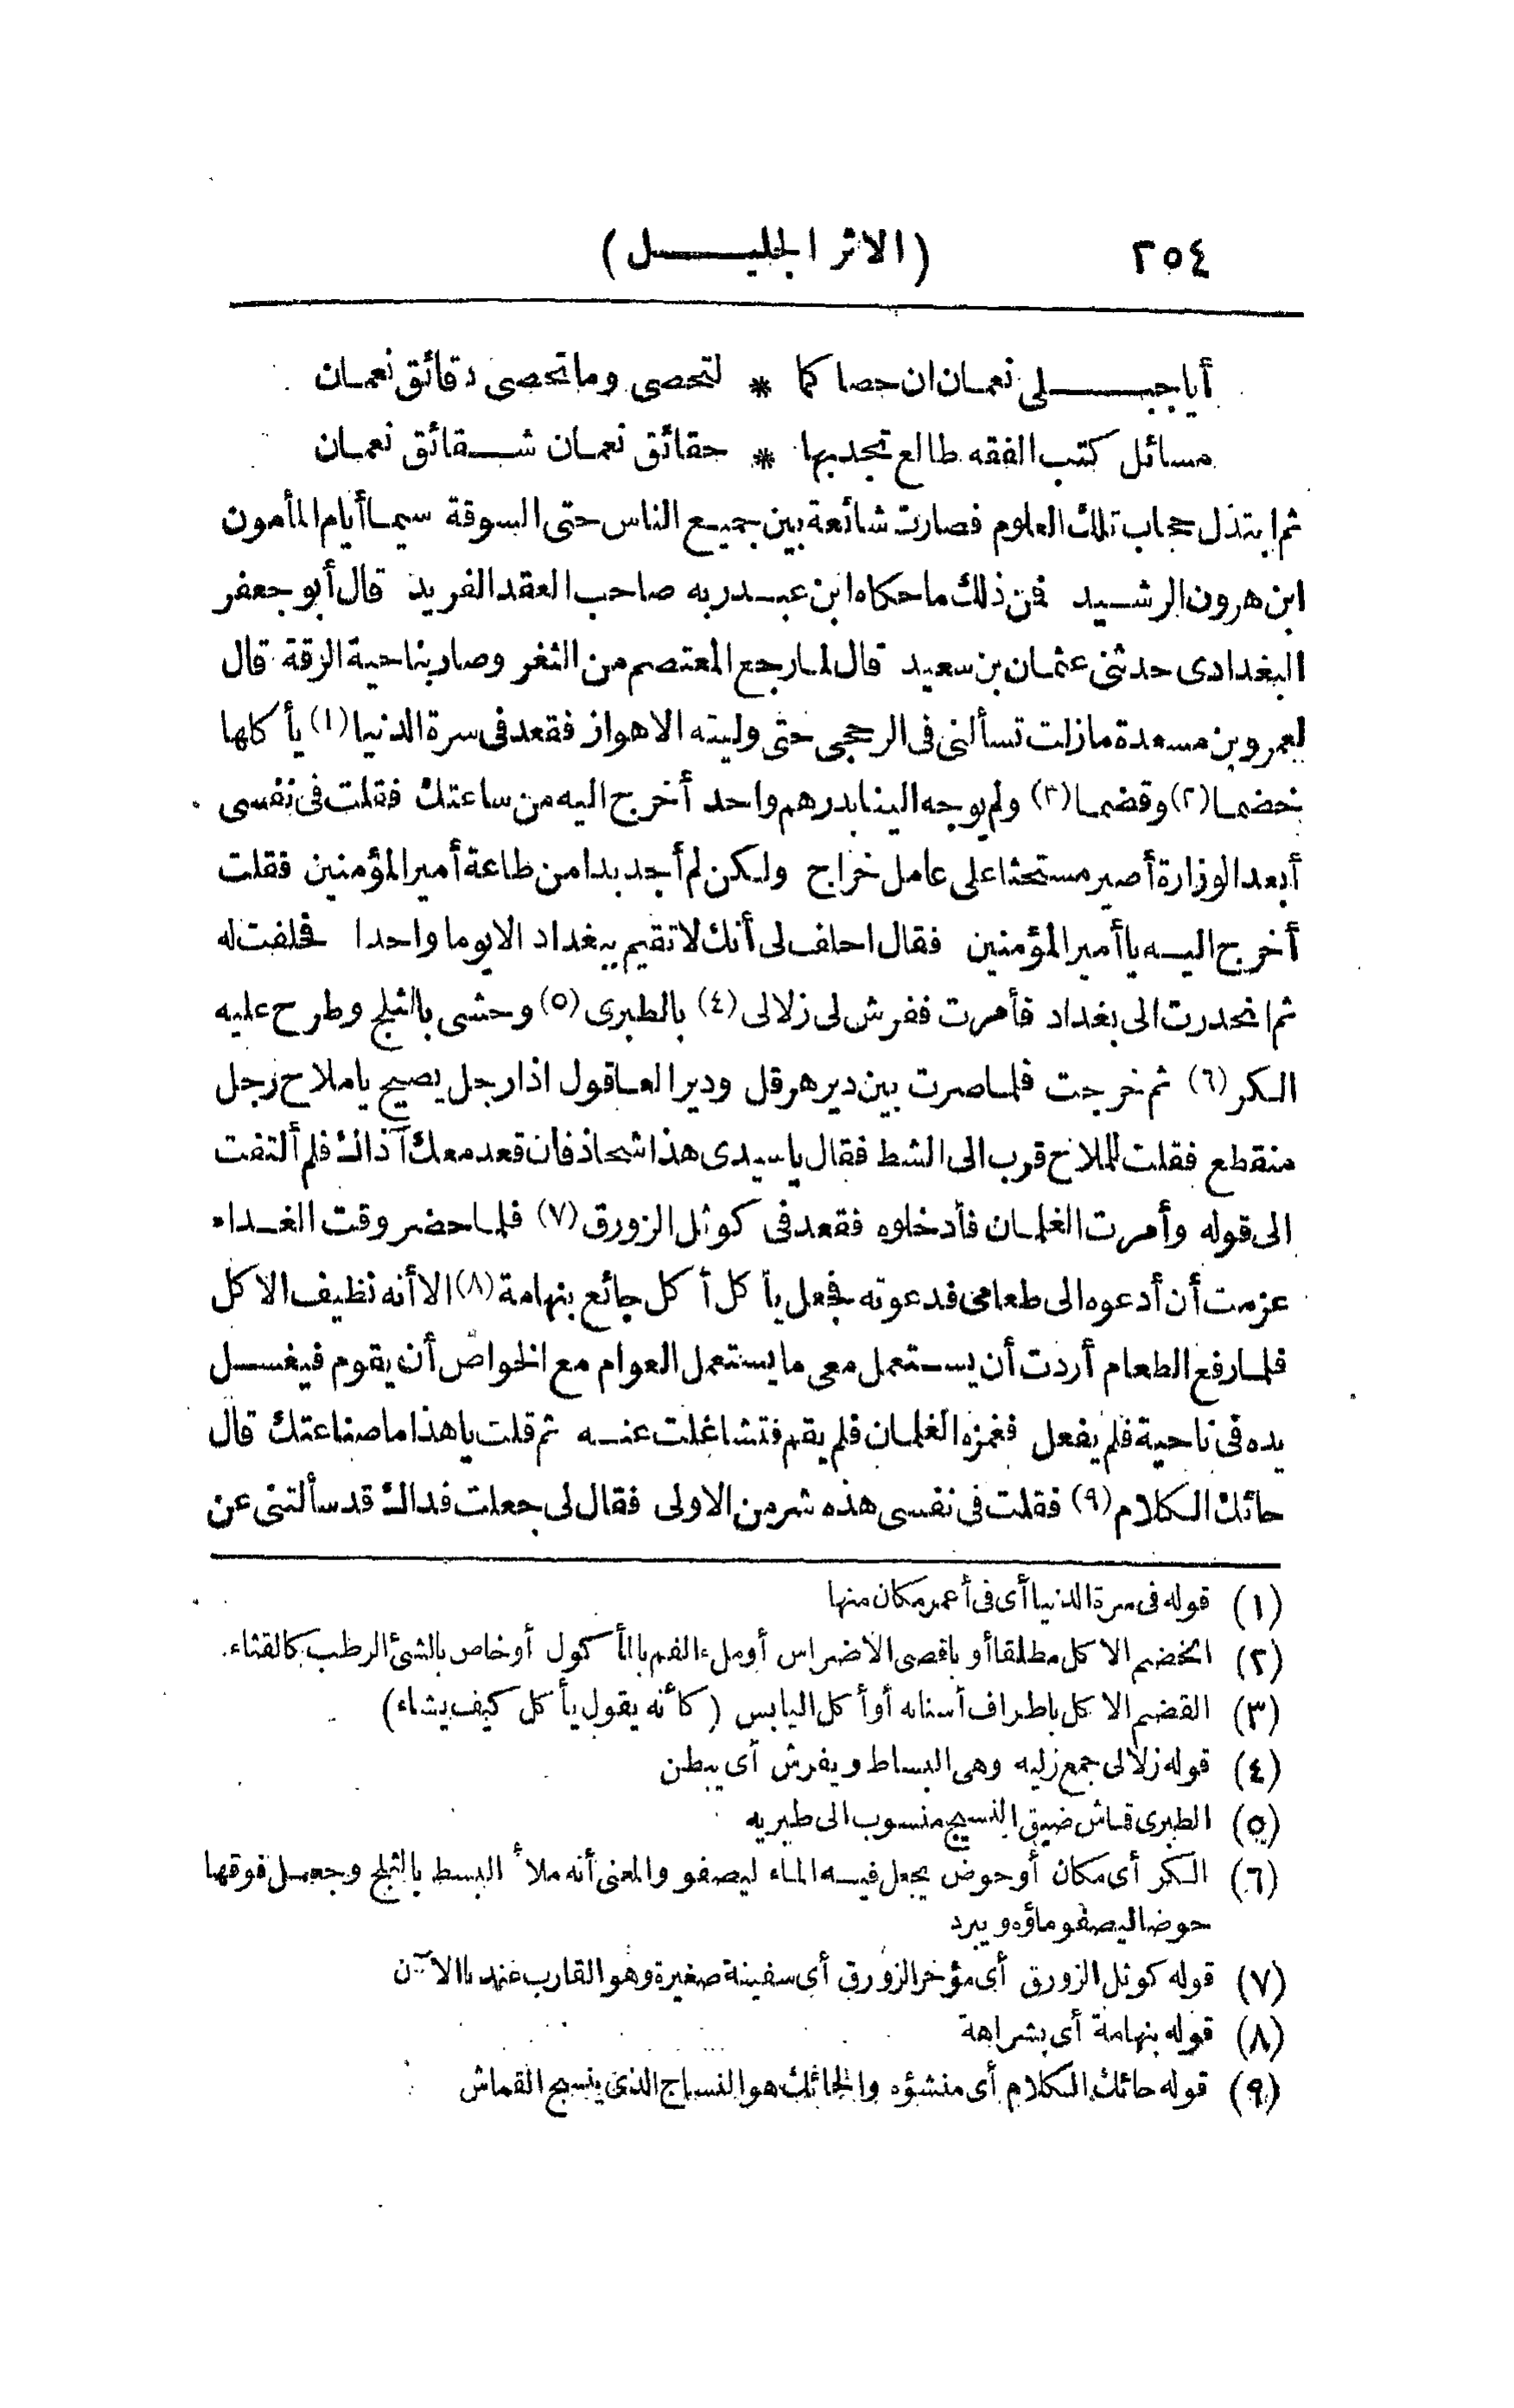 ٢٥٤ (الاثر الجليل)
أيا جبلى نعمان ان حصاكما * لتحصى وما تحصى دقائق نعمان
مسائل كتب الفقه طالع تجد بها * حقائق نعمان شقائق نعمان
ثم ابتذل حجاب تلك العلوم فصارت شائعة بين جميع الناس حتى السوقة سيما أيام المأمون
ابن هرون الرشيد فمن ذلك ما حكاه ابن عبد ربه صاحب العقد الفريد قال أبو جعفر
البغدادى حدثنى عثمان بن سعيد قال لما رجع المعتصم من الثغر وصار بناحية الرقة قال
لعمرو بن مسعدة مازلت تسألنى فى الرجحى حتى وليته الاهواز فقعد فى سرة الدنيا (١) يأكلها
خضما (٢) وقضما (٣) ولم يوجه الينا بدرهم واحد أخرج اليه من ساعتك فقلت فى نفسى
أبعد الوزارة أصير مستحثا على عامل خراج ولكن لم أجد بدا من طاعة أمير المؤمنين فقلت
أخرج اليه يا أمير المؤمنين فقال احلف لى أنك لا تقيم ببغداد الا يوما واحدا فحلفت له
ثم انحدرت الى بغداد فأمرت ففرش لى زلالى (٤) بالطبرى (٥) وحشى بالثلج وطرح عليه
الكر (٦) ثم خرجت فلما صرت بين دير هرقل ودير العاقول اذا رجل يصيح يا ملاح رجل
منقطع فقلت للملاح قرب الى الشط فقال يا سيدى هذا شحاذ فان قعد معك آذاك فلم ألتفت
الى قوله وأمرت الغلمان فأدخلوه فقعد فى كوثل الزورق (٧) فلما حضر وقت الغداء
عزمت أن أدعوه الى طعامى فدعوته فجعل يأكل أكل جائع بنهامة (٨) الا أنه نظيف الاكل
فلما رفع الطعام أردت أن يستعمل معى ما يستعمل العوام مع الخواص أن يقوم فيغسل
يده فى ناحية فلم يفعل فغمزه الغلمان فلم يقم فتشاغلت عنه ثم قلت يا هذا ما صناعتك قال
حائك الكلام (٩) فقلت فى نفسى هذه شر من الاولى فقال لى جعلت فداك قد سألتنى عن
(١) قوله فى سرة الدنيا أى فى أعمر مكان منها
(٢) الخضم الاكل مطلقا أو باقصى الاضراس أو ملء الفم بالمأكول أو خاص بالشئ الرطب كالقثاء.
(٣) القضم الاكل باطراف أسنانه أو أكل اليابس (كأنه يقول يأكل كيف يشاء)
(٤) قوله زلالى جمع زليه وهى البساط ويفرش أى يبطن
(٥) الطبرى قماش ضيق النسيج منسوب الى طبريه
(٦) الكر أى مكان أو حوض يجعل فيه الماء ليصفو والمعنى أنه ملأ البسط بالثلج وجعل فوقها
حوضا ليصفو ماؤه ويبرد
(٧) قوله كوثل الزورق أى مؤخر الزورق أى سفينة صغيرة وهو القارب عندنا الآن
(٨) قوله بنهامة أى بشراهة
(٩) قوله حائك الكلام أى منشؤه والحائك هو النساج الذى ينسج القماش